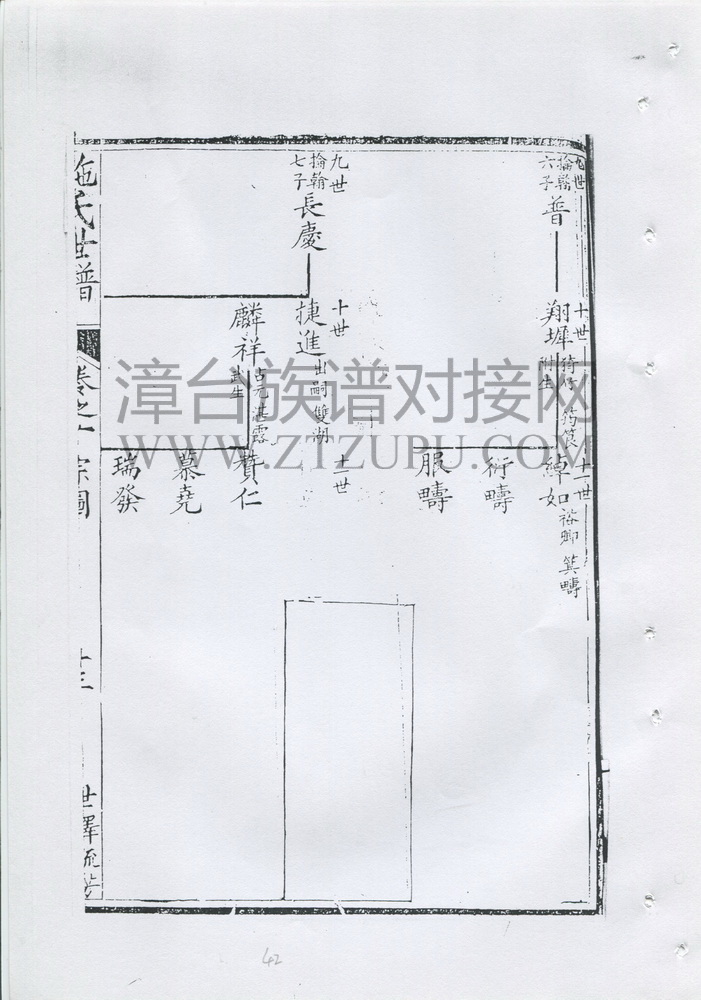 九世
掄翰
六子
普
十世
翔墀
猗修 筠筤
附生
十一世
綽如
裕卿 箕疇
衍疇
服疇
九世
掄翰
七子
長慶
十世
捷進
出嗣雙湖
十一世
麟祥
占元 湛露
武生
贊仁
慕堯
瑞發
施氏世譜
卷之 宗圖
十三
世澤流芳
漳台族谱对接网
WWW.ZTZUPU.COM
42